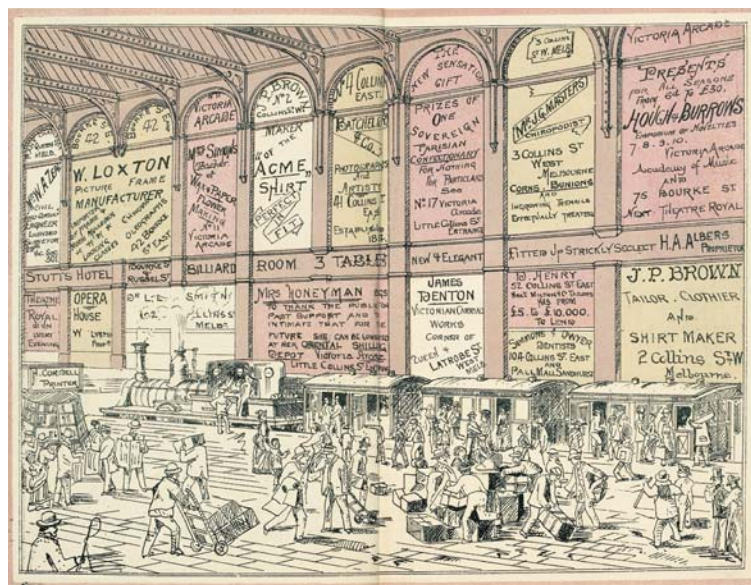 42
42
W. LOXTON
PICTURE FRAME
MANUFACTURER
42 BOURKE
ST EAST
VICTORIA
ARCADE
MRS SIMONS
WAX & PAPER
FLOWER
MAKING
VICTORIA
ARCADE
J.P. BROWN
No 2
COLLINS ST WT
MAKER
OF THE
"ACME"
SHIRT
PERFECT
IN
FIT
41 COLLINS
EAST
BATCHELDER
& CO.
PHOTOGRAPHERS
AND
ARTISTS
41 COLLINS ST
EAST
ESTABLISHED
THE
NEW SENSATION
GIFT
PRIZES OF
ONE
SOVEREIGN
PARISIAN
CONFECTIONARY
FOR NOTHING
FOR PARTICULARS
SEE
No 17 VICTORIA
Arcade
LITTLE Collins ST
ENTRANCE
3 COLLINS
ST W. MELB
Mr J.G. MASTERS
CHIROPODIST
3 COLLINS ST
WEST
MELBOURNE
CORNS, BUNIONS
AND
INGROWING TOENAILS
EFFECTUALLY TREATED
VICTORIA ARCADE
"PRESENTS"
FOR ALL SEASONS
FROM 6d TO £50.
HOUGH & BURROWS
EMPORIUM OF NOVELTIES
7. 8. 9. 10.
VICTORIA ARCADE
Academy of Music
AND
75 BOURKE ST
NEXT THEATRE ROYAL
STUTTS HOTEL
BOURKE ST
RUSSELL ST
BILLIARD ROOM 3 TABLES
NEW & ELEGANT
FITTED UP STRICKLY SELECT H.A. ALBERS
PROPRIETOR
THEATRE
ROYAL
EVERY
EVENING
OPERA
HOUSE
DR L.L. SMITH
COLLINS ST
MELB
MRS HONEYMAN BEGS
TO THANK THE PUBLIC FOR
PAST SUPPORT AND TO
INTIMATE THAT FOR THE
FUTURE SHE CAN BE CONSULTED
AT HER ORIENTAL SHILLING
DEPOT Victoria Arcade
LITTLE COLLINS ST ENTRANCE
JAMES
DENTON
VICTORIAN CARRIAGE
WORKS
CORNER OF
QUEEN &
LATROBE ST
WEST
MELB
D. HENRY
52 COLLINS ST EAST
HAS FROM
£5 TO £10,000
TO LEND
SIMMONS & DWYER
DENTISTS
104 COLLINS ST. EAST
AND
PALL MALL SANDHURST
J.P. BROWN
TAILOR, CLOTHIER
AND
SHIRT MAKER
2 Collins St W
Melbourne
J. CORDELL
PRINTER